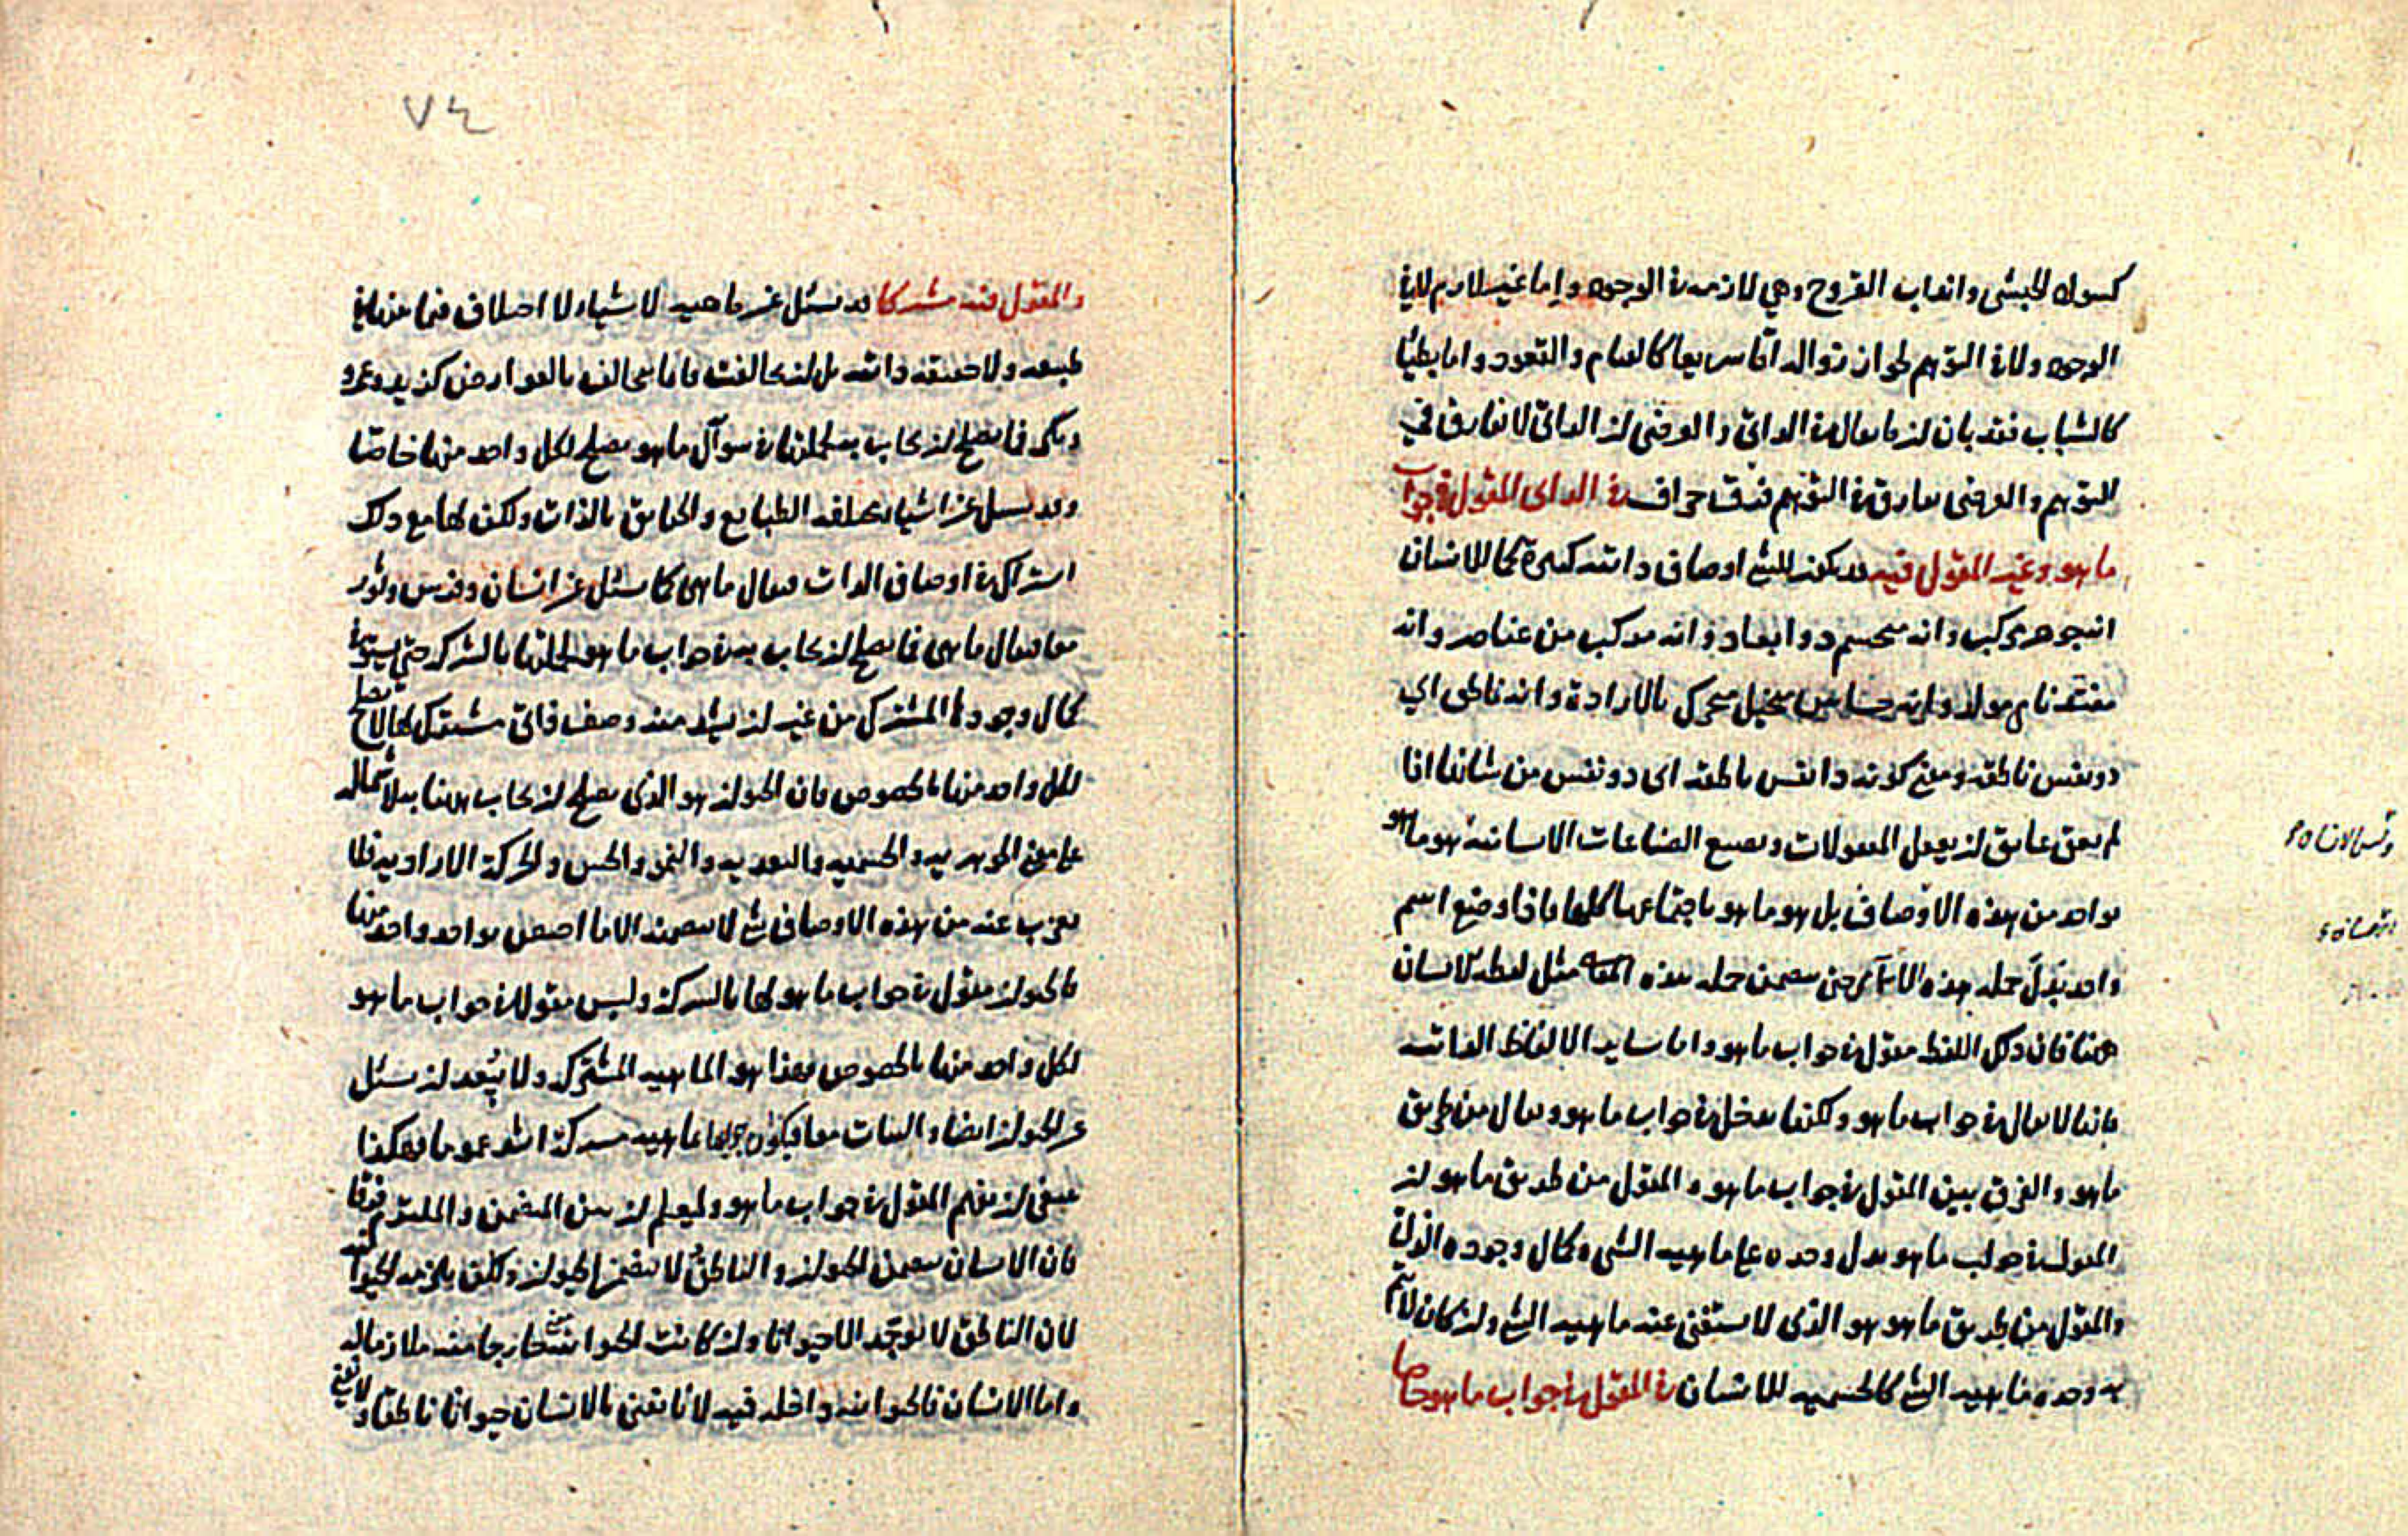 كسواد الحبشي وانداب القروح وهي لازمة في الوجود واما غير لازم لا في
الوجود ولا في التوهم لجواز زواله اما سريعا كالقيام والقعود واما بطيئا
كالشباب فقد بان ان ما يقال في الذاتي والعرضي ان الذاتي لا يفارق في
التوهم والعرضي يفارق في التوهم فرق جزاف في الذاتي المقول في جواب
ما هو وغير المقول فيه قد يكون للشيء اوصاف ذاتية كثيرة كما للانسان
انه جوهر مركب وانه متجسم ذو ابعاد وانه مركب من عناصر وانه
مغتذ نام مولد وانه حساس متخيل متحرك بالارادة وانه ناطق اي
ذو نفس ناطقة ومعنى كونه ذا نفس ناطقة اي ذو نفس من شانها اذا
لم يعق عايق ان يعقل المعقولات ويصنع الصناعات الانسانية فهو ما هو
بواحد من هذه الاوصاف بل هو ما هو باجتماعها كلها فاذا وضع اسم
واحد يدل جملة هذه حتى يتضمن جملة هذه مثل لفظة الانسان
ههنا فان ذلك اللفظ مقول في جواب ما هو واما ساير الالفاظ الذاتية
فانها لا يقال في جواب ما هو ولكنها تدخل في جواب ما هو ويقال من طريق
ما هو والفرق بين المقول في جواب ما هو والمقول من طريق ما هو ان
المقول في جواب ما هو يدل وحده على ماهية الشيء وكمال وجوده الذاتي
والمقول من طريق ما هو هو الذي لا يستغنى عنه ماهية الشيء وان كان لا يتم
به وحده ماهية الشيء كالجسمية للانسان في المقول في جواب ما هو خاصا
وتس الانسان
٧٤
والمقول فيه مشتركا قد يسئل عن ماهية لاشياء لا اختلاف فيما بينها في
طبيعة ولا حقيقة ذاتية بل ان تخالفت فانما يتخالف بالعوارض كزيد وعمرو
وبكر فما يصلح ان يجاب بجملتها في سوآل ما هو يصلح لكل واحد منها خاصا
وقد يسئل عن اشياء مختلفة الطبايع والحقايق بالذات ولكن لها مع ذلك
اشتراك في اوصاف الذات فيقال ما هي كما يسئل عن انسان وفرس وثور
معا فيقال ما هي فما يصلح ان يجاب به في جواب ما هو لجملتها بالشركة حتى يستوفي
كمال وجودها المشترك من غير ان يشذ منه وصف ذاتي مشترك لها لا يصلح
لكل واحد منها بالخصوص فان الحيوان هو الذي يصلح ان يجاب ههنا به لاشتماله
على معنى الجوهرية والجسمية والتغذية والنمو والحس والحركة الارادية فلا
يعزب عنه من هذه الاوصاف شيء لا يتضمنه الا ما اختص بواحد واحد منها
فالحيوان مقول في جواب ما هو لها بالشركة وليس مقولا في جواب ما هو
لكل واحد منها بالخصوص فهذا هو الماهية المشتركة ولا يبعد ان يسئل
عن الحيوان ايضا والنبات معا فيكون جوابها ماهية مشتركة اشد عموما فهكذا
ينبغي ان يفهم المقول في جواب ما هو وليعلم ان بين المتضمن والملتزم فرقا
فان الانسان يتضمن الحيوان والناطق لا يتضمن الحيوان ولكن يلزمه الحيوانية
لان الناطق لا يوجد الا حيوانا وان كانت الحيوانية خارجا منه ملازما له
واما الانسان فالحيوانية داخلة فيه لانا نعني بالانسان حيوانا ناطقا ولا نعني